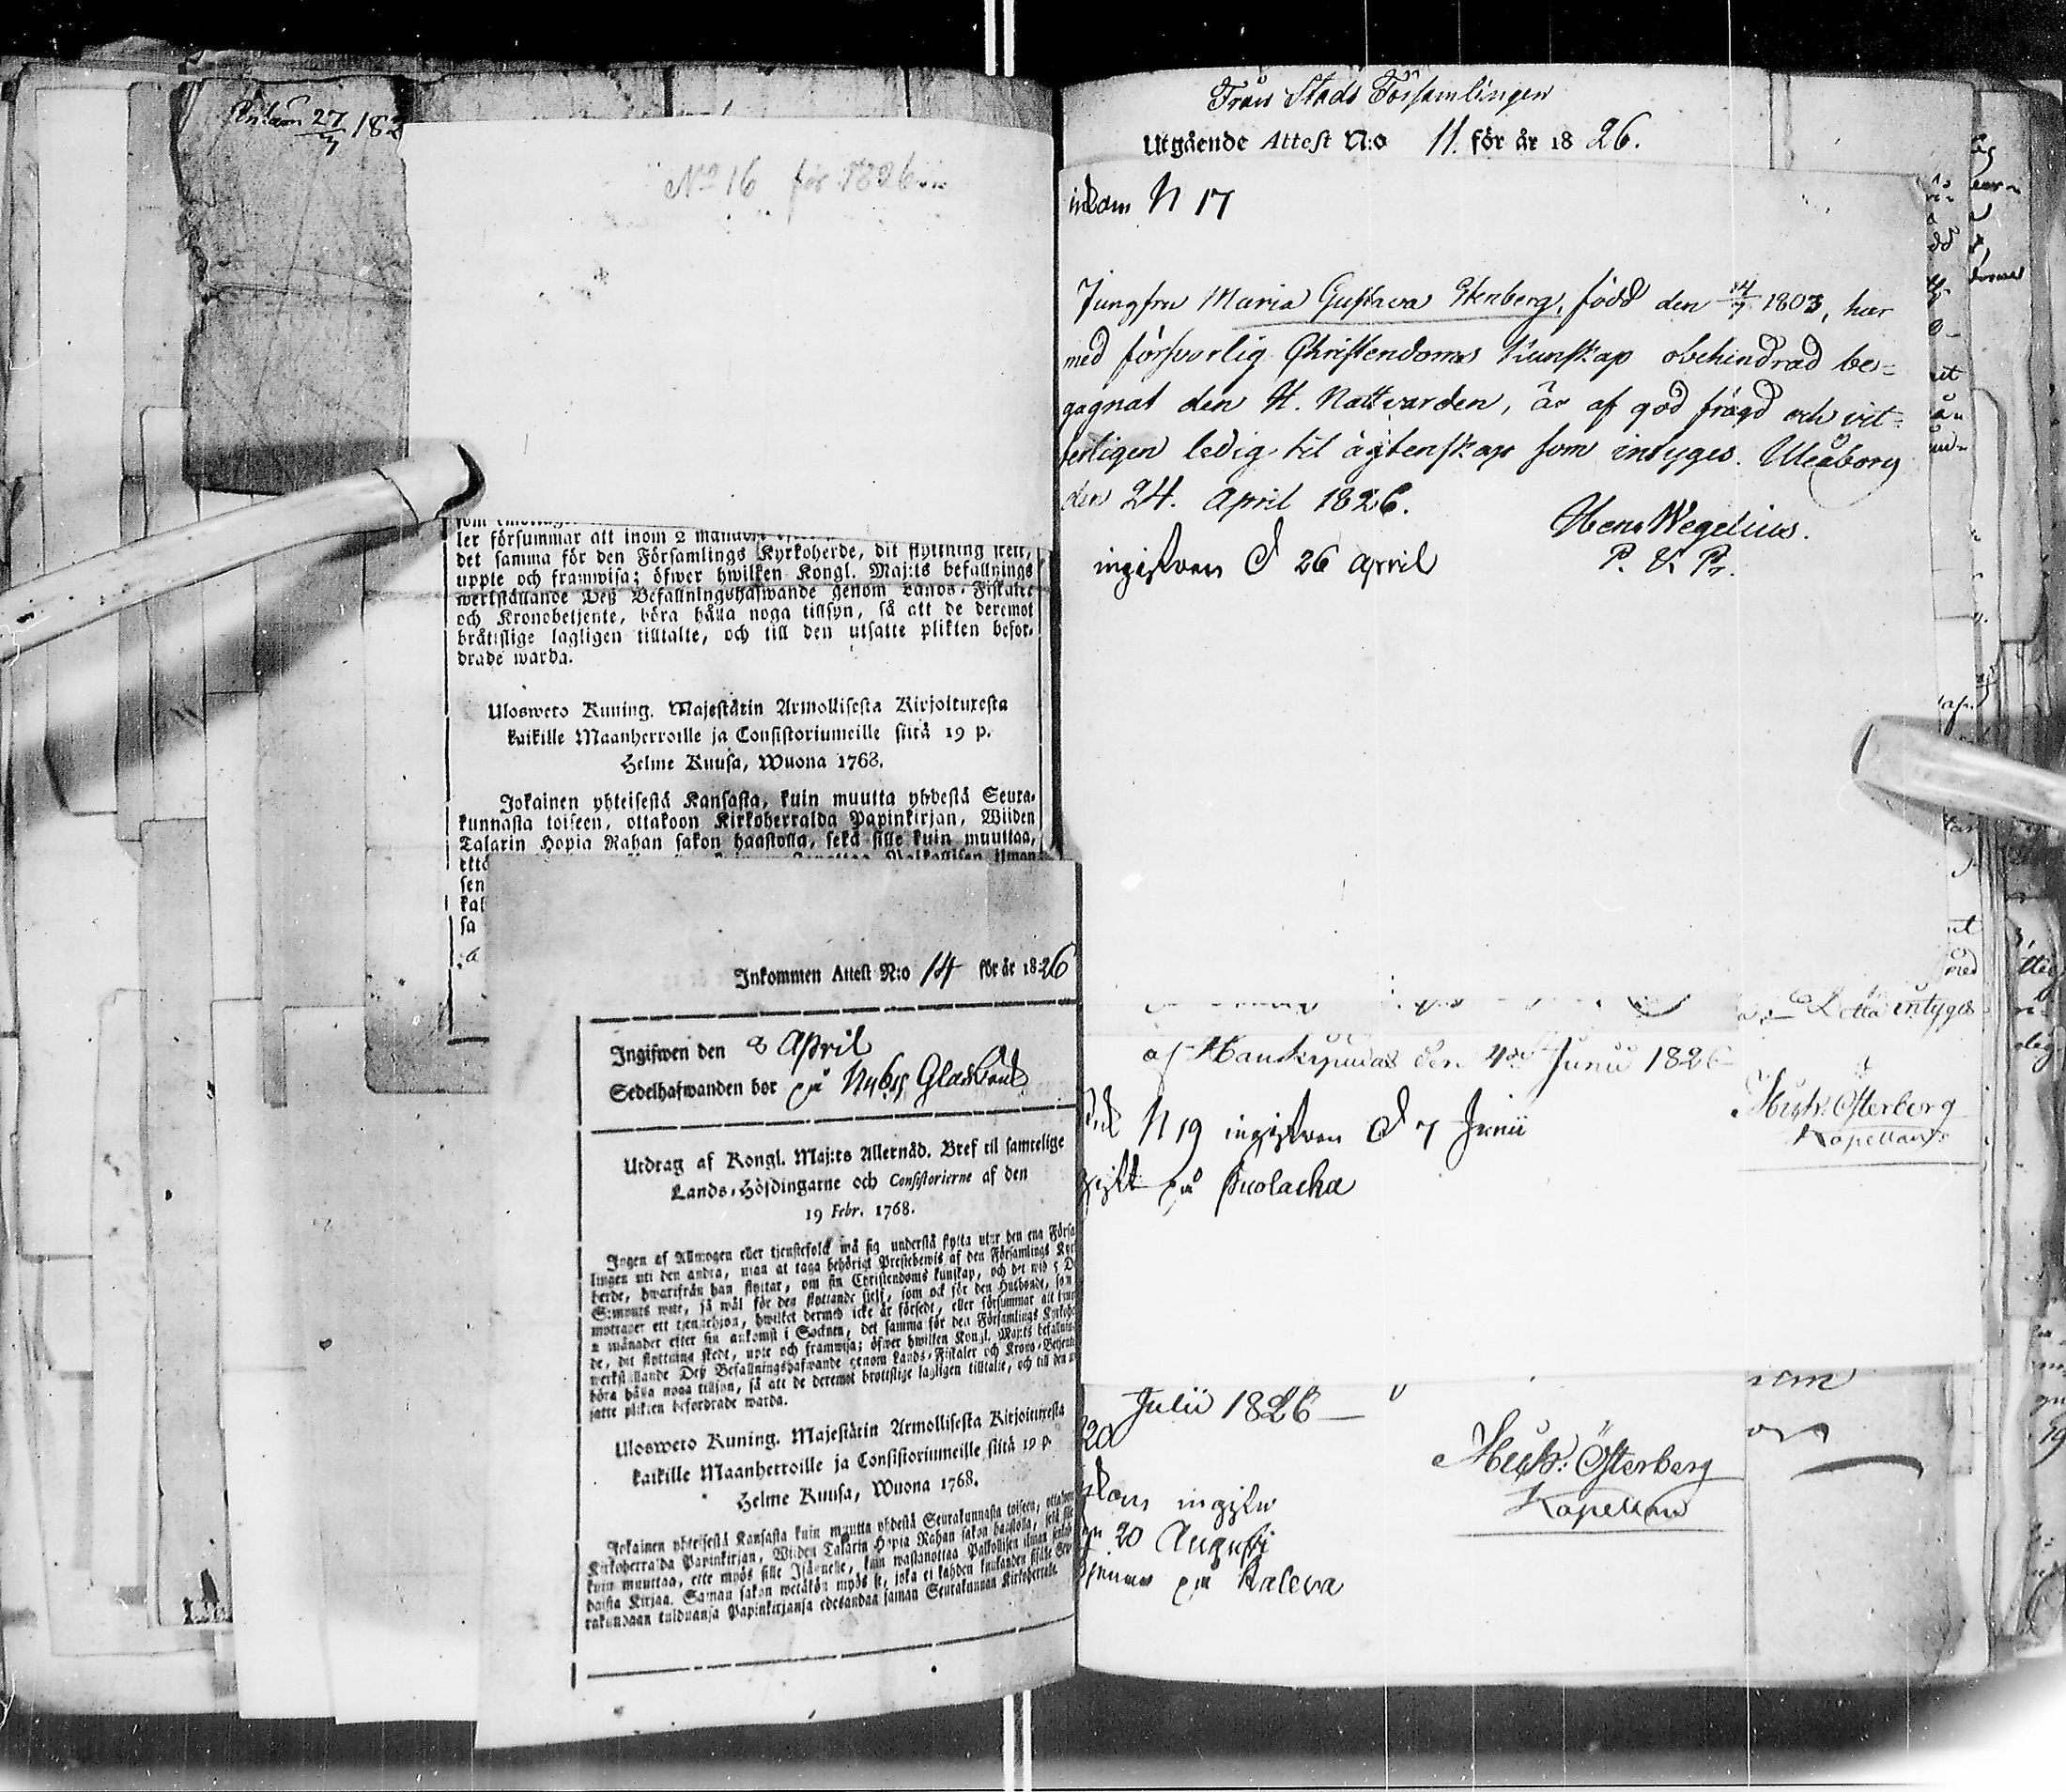 27 182
No 16 för 1826
ler försummar att inom 2
det samma för den Församlings Kyrkoherde, dit flyttning skett,
uppte och framwisa; öfwer hwilken Kongl. Maj:ts befallnings
werkställande Deß Befallningshafwande genom Lands-Fiskaler
och Kronobetjente, böra hålla noga tillsyn, så att de deremot
bråtislige lagligen tilltalte, och till den utsatte plikten befor-
drade warda.
Ulosweto Kuning. Majestätin Armollisesta Kirjoituxesta
kaikille Maanherroille ja Consistoriumeille siitä 19 p.
Helme Kuusa, Wuona 1768.
Jokainen yhteisestä Kansasta, kuin muutta yhdestä Seura-
kunnasta toiseen, ottakoon Kirkoherralda Papinkirjan, Wiiden
Talarin Hopia Rahan sakon haastolla, sekä sille kuin muuttaa,
että
sen
kal
sa
Inkommen Attest N:o 14 för år 1826
Ingifwen den 8 April
Sedelhafwanden bor på Nyby Glasbruk
Utdrag af Kongl. Maj:ts Allernåd. Bref til samtelige
Lands-Höfdingarne och Consistorierne af den
19 Febr. 1768.
Ingen af Allmogen eller tjenstefolck må sig understå flytta utur den ena Försa
lingen uti den andra, utan at taga behörigt Prestebewis af den Församlings Kyr
herde, hwarifrån han flyttar, om sin Christendoms kunskap, och det wid 5 D
S:mynts wite, så wäl för den flyttande sielf, som ock för den Husbonde, som
mottager ett tjenstehjon, hwilket dermed icke är försedt, eller försummar att inom
2 månader efter sin ankomst i Socknen, det samma för den Församlings Kyrkoher
de, dit flyttning skedt, upte och framwisa; öfwer hwilken Kongl. Maj:ts befallning
werkställande Deß Befallningshafwande genom Lands-Fiskaler och Krono-Betjente
böra hålla noga tillsyn, så att de deremot brottslige lagligen tilltalte, och till den ut
satte plikten befordrade warda.
Ulosweto Kuning. Majestätin Armollisesta Kirjoituxesta
kaikille Maanherroille ja Consistoriumeille siitä 19 p.
Helme Kuusa, Wuona 1768.
Jokainen yhteisestä Kansasta kuin muutta yhdestä Seurakunnasta toiseen, ottakoon
Kirkoherralda Papinkirjan, Wiiden Talarin Hopia Rahan sakon haastolla, sekä sille
kuin muuttaa, ette myös sille Isännelle, kuin wastanottaa Palkollisen ilman
haista Kirjaa. Saman sakon wetäkön myös se, joka ei kahden kuukauden sisälle Seu
rakundaan tulduansa Papinkirjansa edesandaa saman Seurakunnan Kirkoherralle.
Från Stads Församlingen
Utgående Attest N:o 11. för år 1826.
inkom N 17
Jungfru Maria Gustava Stenberg, född den 14/7 1803, har
med försvarlig Christendoms Kunskap obehindrad be-
gagnat den H. Nattvarden, är af god frägd och vit-
terligen ledig til ägtenskap som intyges. Uleåborg
den 24. April 1826.
Hens Wegelius.
P. V. Pr.
ingifven d 26 April
Detta intyges
af Haukipudas den 4de Junii 1826
Österberg
Kapellan
N 19 ingifven d 7 Junii
gift på Puolacka
Julii 1826
20
Österberg
Kapellan
inkom ingifv
20 Augusti
på Kaleva